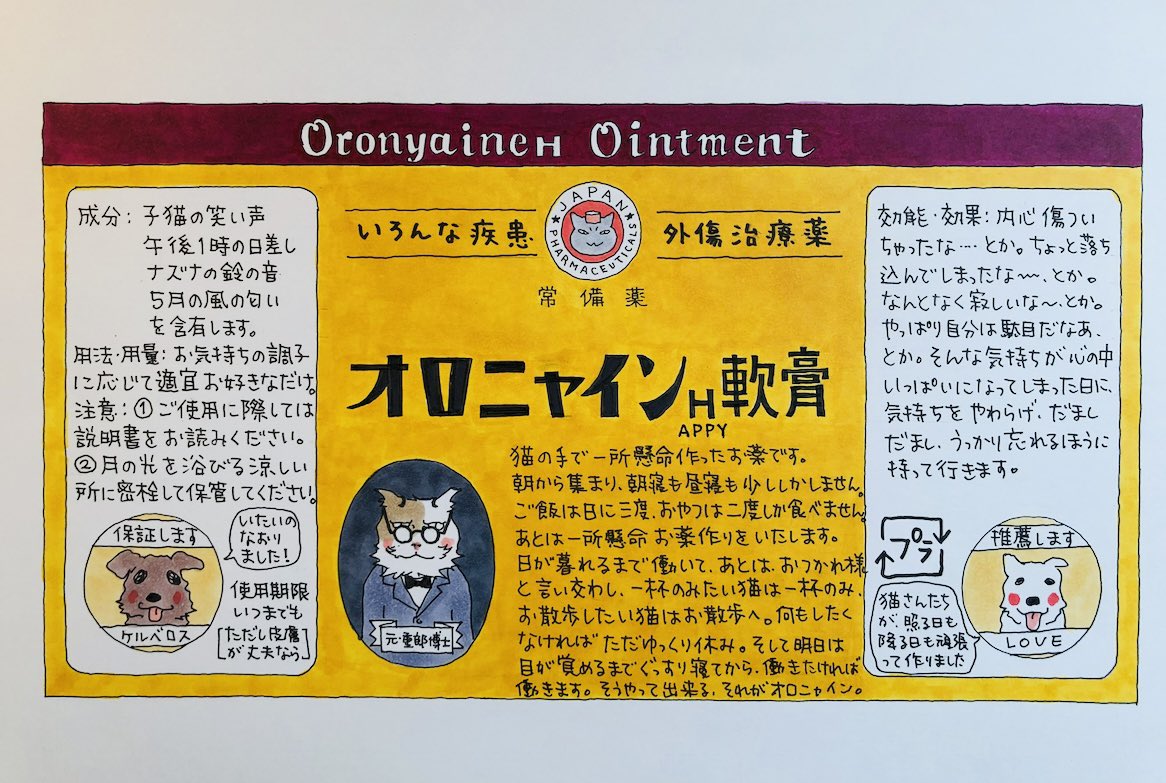 OronyaineH Ointment
成分：子猫の笑い声
午後1時の日差し
ナズナの鈴の音
5月の風の匂い
を含有します。
用法・用量：お気持ちの調子
に応じて適宜お好きなだけ。
注意：①ご使用に際しては
説明書をお読みください。
②月の光を浴びる涼しい
所に密栓して保管してください。
保証します
ケルベロス
いたいの
なおり
ました！
使用期限
いつまでも
[ただし皮膚
が丈夫なら]
いろんな疾患
JAPAN
PHARMACEUTICALS
外傷治療薬
常備薬
オロニャインH軟膏
APPY
元・重郎博士
猫の手で一所懸命作ったお薬です。
朝から集まり、朝寝も昼寝も少ししかしません。
ご飯は日に三度、おやつは二度しか食べません。
あとは一所懸命お薬作りをいたします。
日が暮れるまで働いて、あとは、おつかれ様
と言い交わし、一杯のみたい猫は一杯のみ、
お散歩したい猫はお散歩へ。何もしたく
なければただゆっくり休み。そして明日は
目が覚めるまでぐっすり寝てから、働きたければ
働きます。そうやって出来る、それがオロニャイン。
効能・効果：内心傷つい
ちゃったな…とか。ちょっと落ち
込んでしまったな〜、とか。
なんとなく寂しいな〜、とか。
やっぱり自分は駄目だなあ、
とか。そんな気持ちが心の中
いっぱいになってしまった日に、
気持ちをやわらげ、だまし
だまし、うっかり忘れるほうに
持って行きます。
プラ
猫さんたち
が、照る日も
降る日も頑張
って作りました
推薦します
LOVE